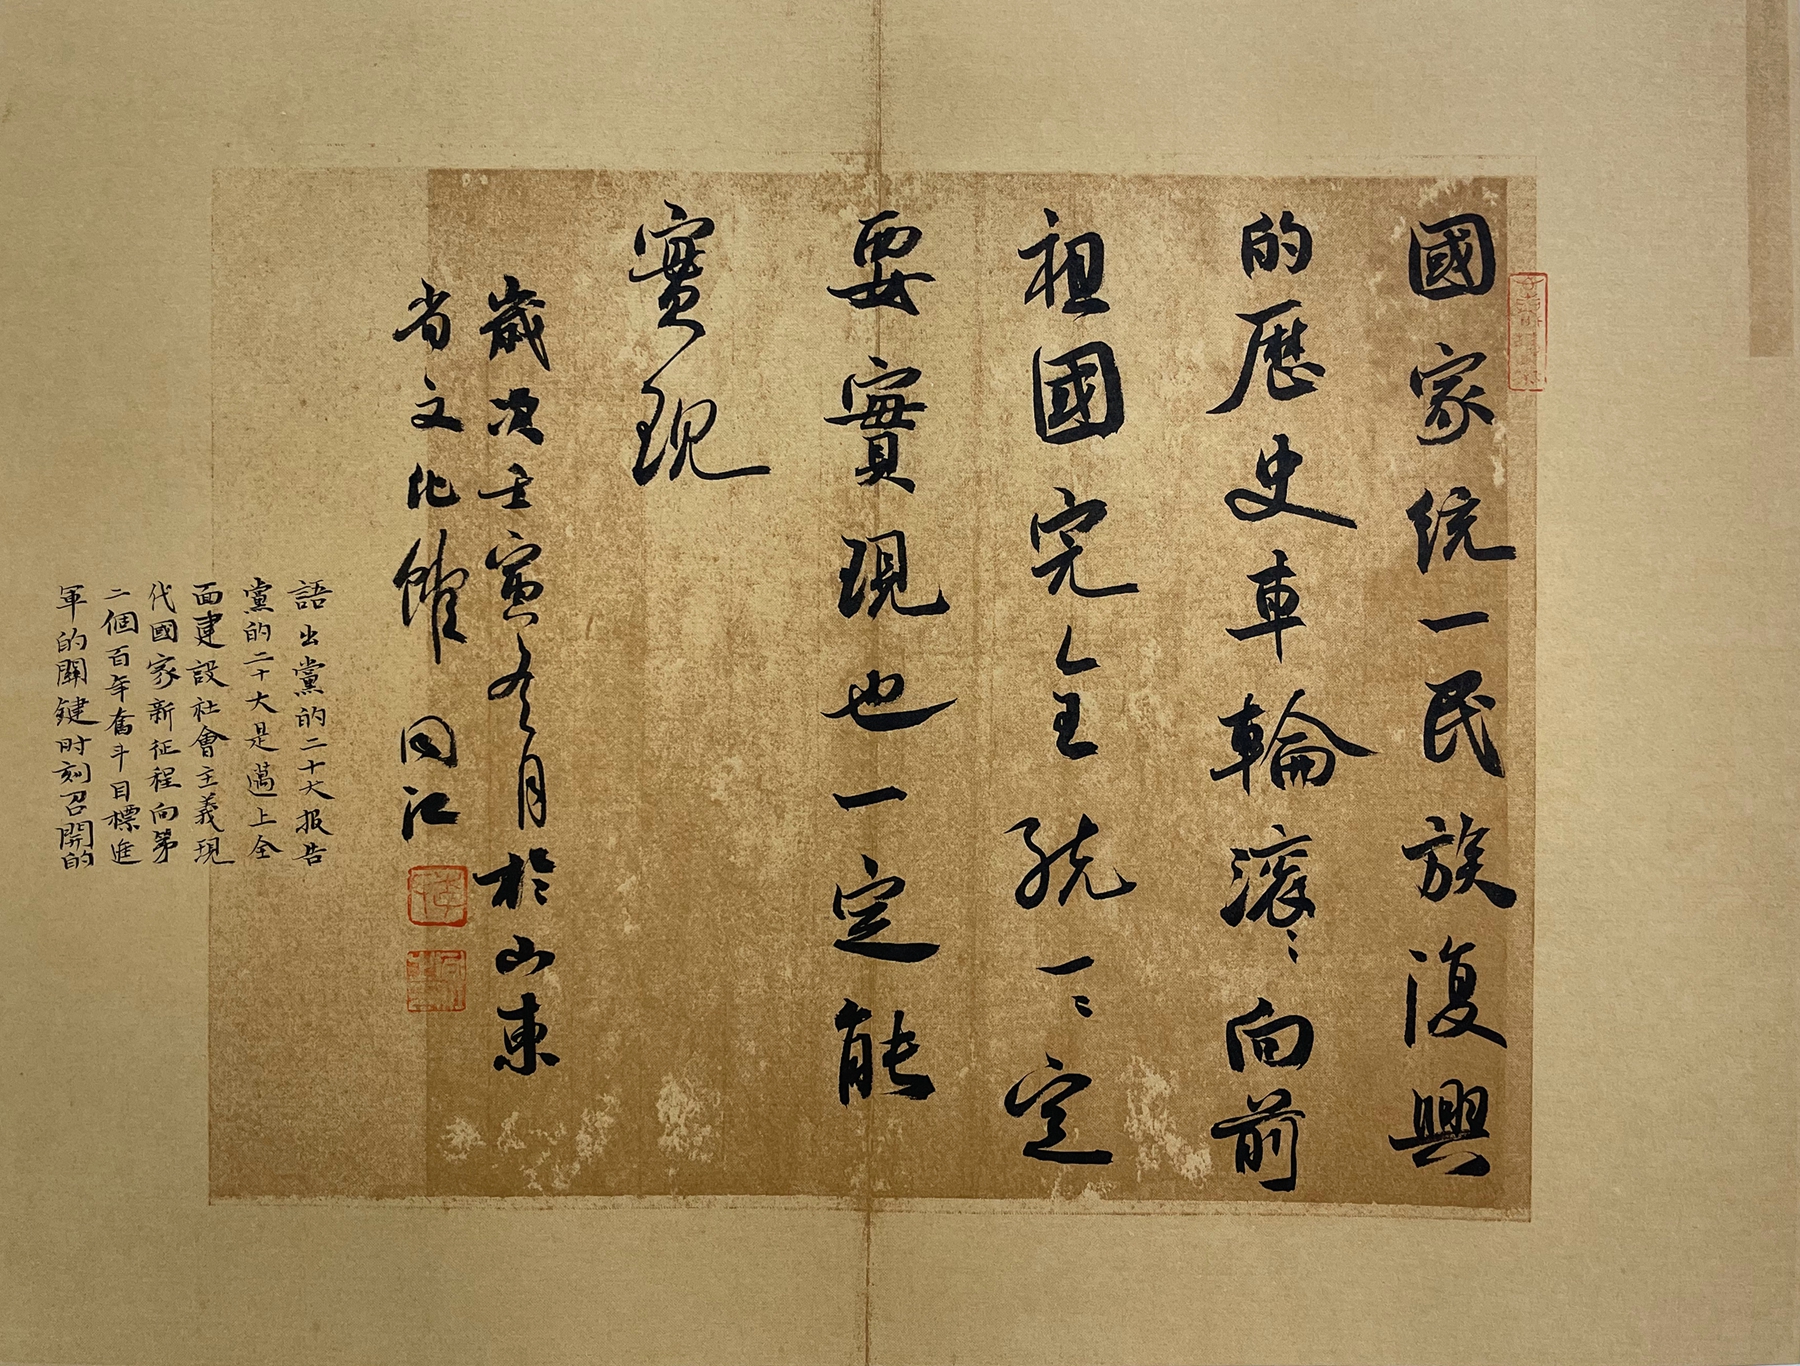 國家统一民族復興
的歷史車輪滾〻向前
祖國完全統一〻定
要實現也一定能
實現
歲次壬寅冬月於山東
省文化館 同江
語出黨的二十大报告
黨的二十大是邁上全
面建設社會主義現
代國家新征程向第
二個百年奮斗目標進
軍的關鍵时刻召開的